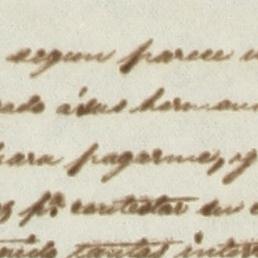 segun parece
ado á sus herman
para pagarme, y
pr. contestar su
tantas inter